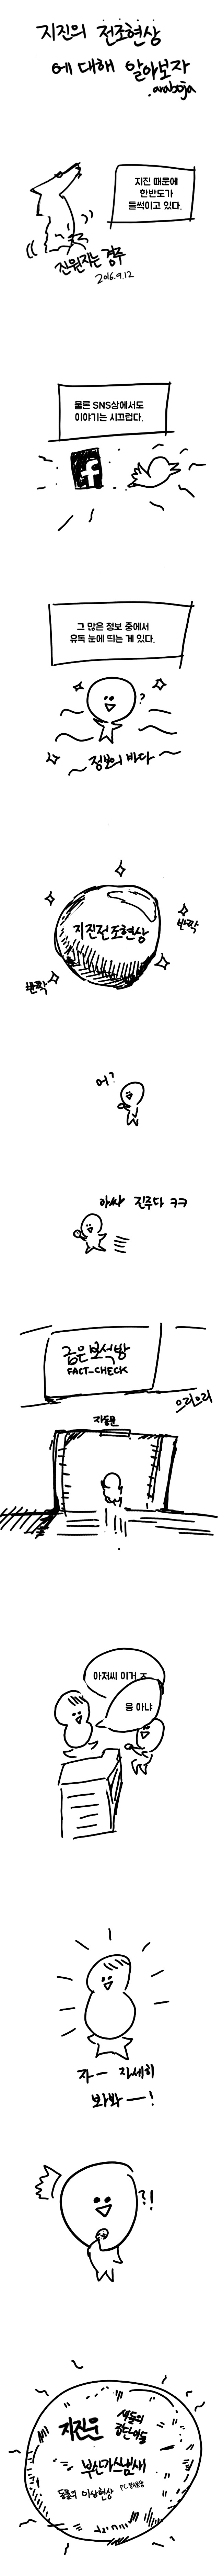 지진의 전조현상
에 대해 알아보자
.araboja
지진 때문에
한반도가
들썩이고 있다.
진원지는 경주
2016.9.12
물론 SNS상에서도
이야기는 시끄럽다.
f
그 많은 정보 중에서
유독 눈에 띄는 게 있다.
?
정보의 바다
지진전조현상
반짝
반짝
어?
아싸 진주다 ㅋㅋ
굽은보석방
FACT-CHECK
으리으리
자동문
아저씨 이거 ㅈ
응 아냐
자— 자세히
봐봐—!
?!
지진운
새들의
부산가스냄새
동물의 이상현상